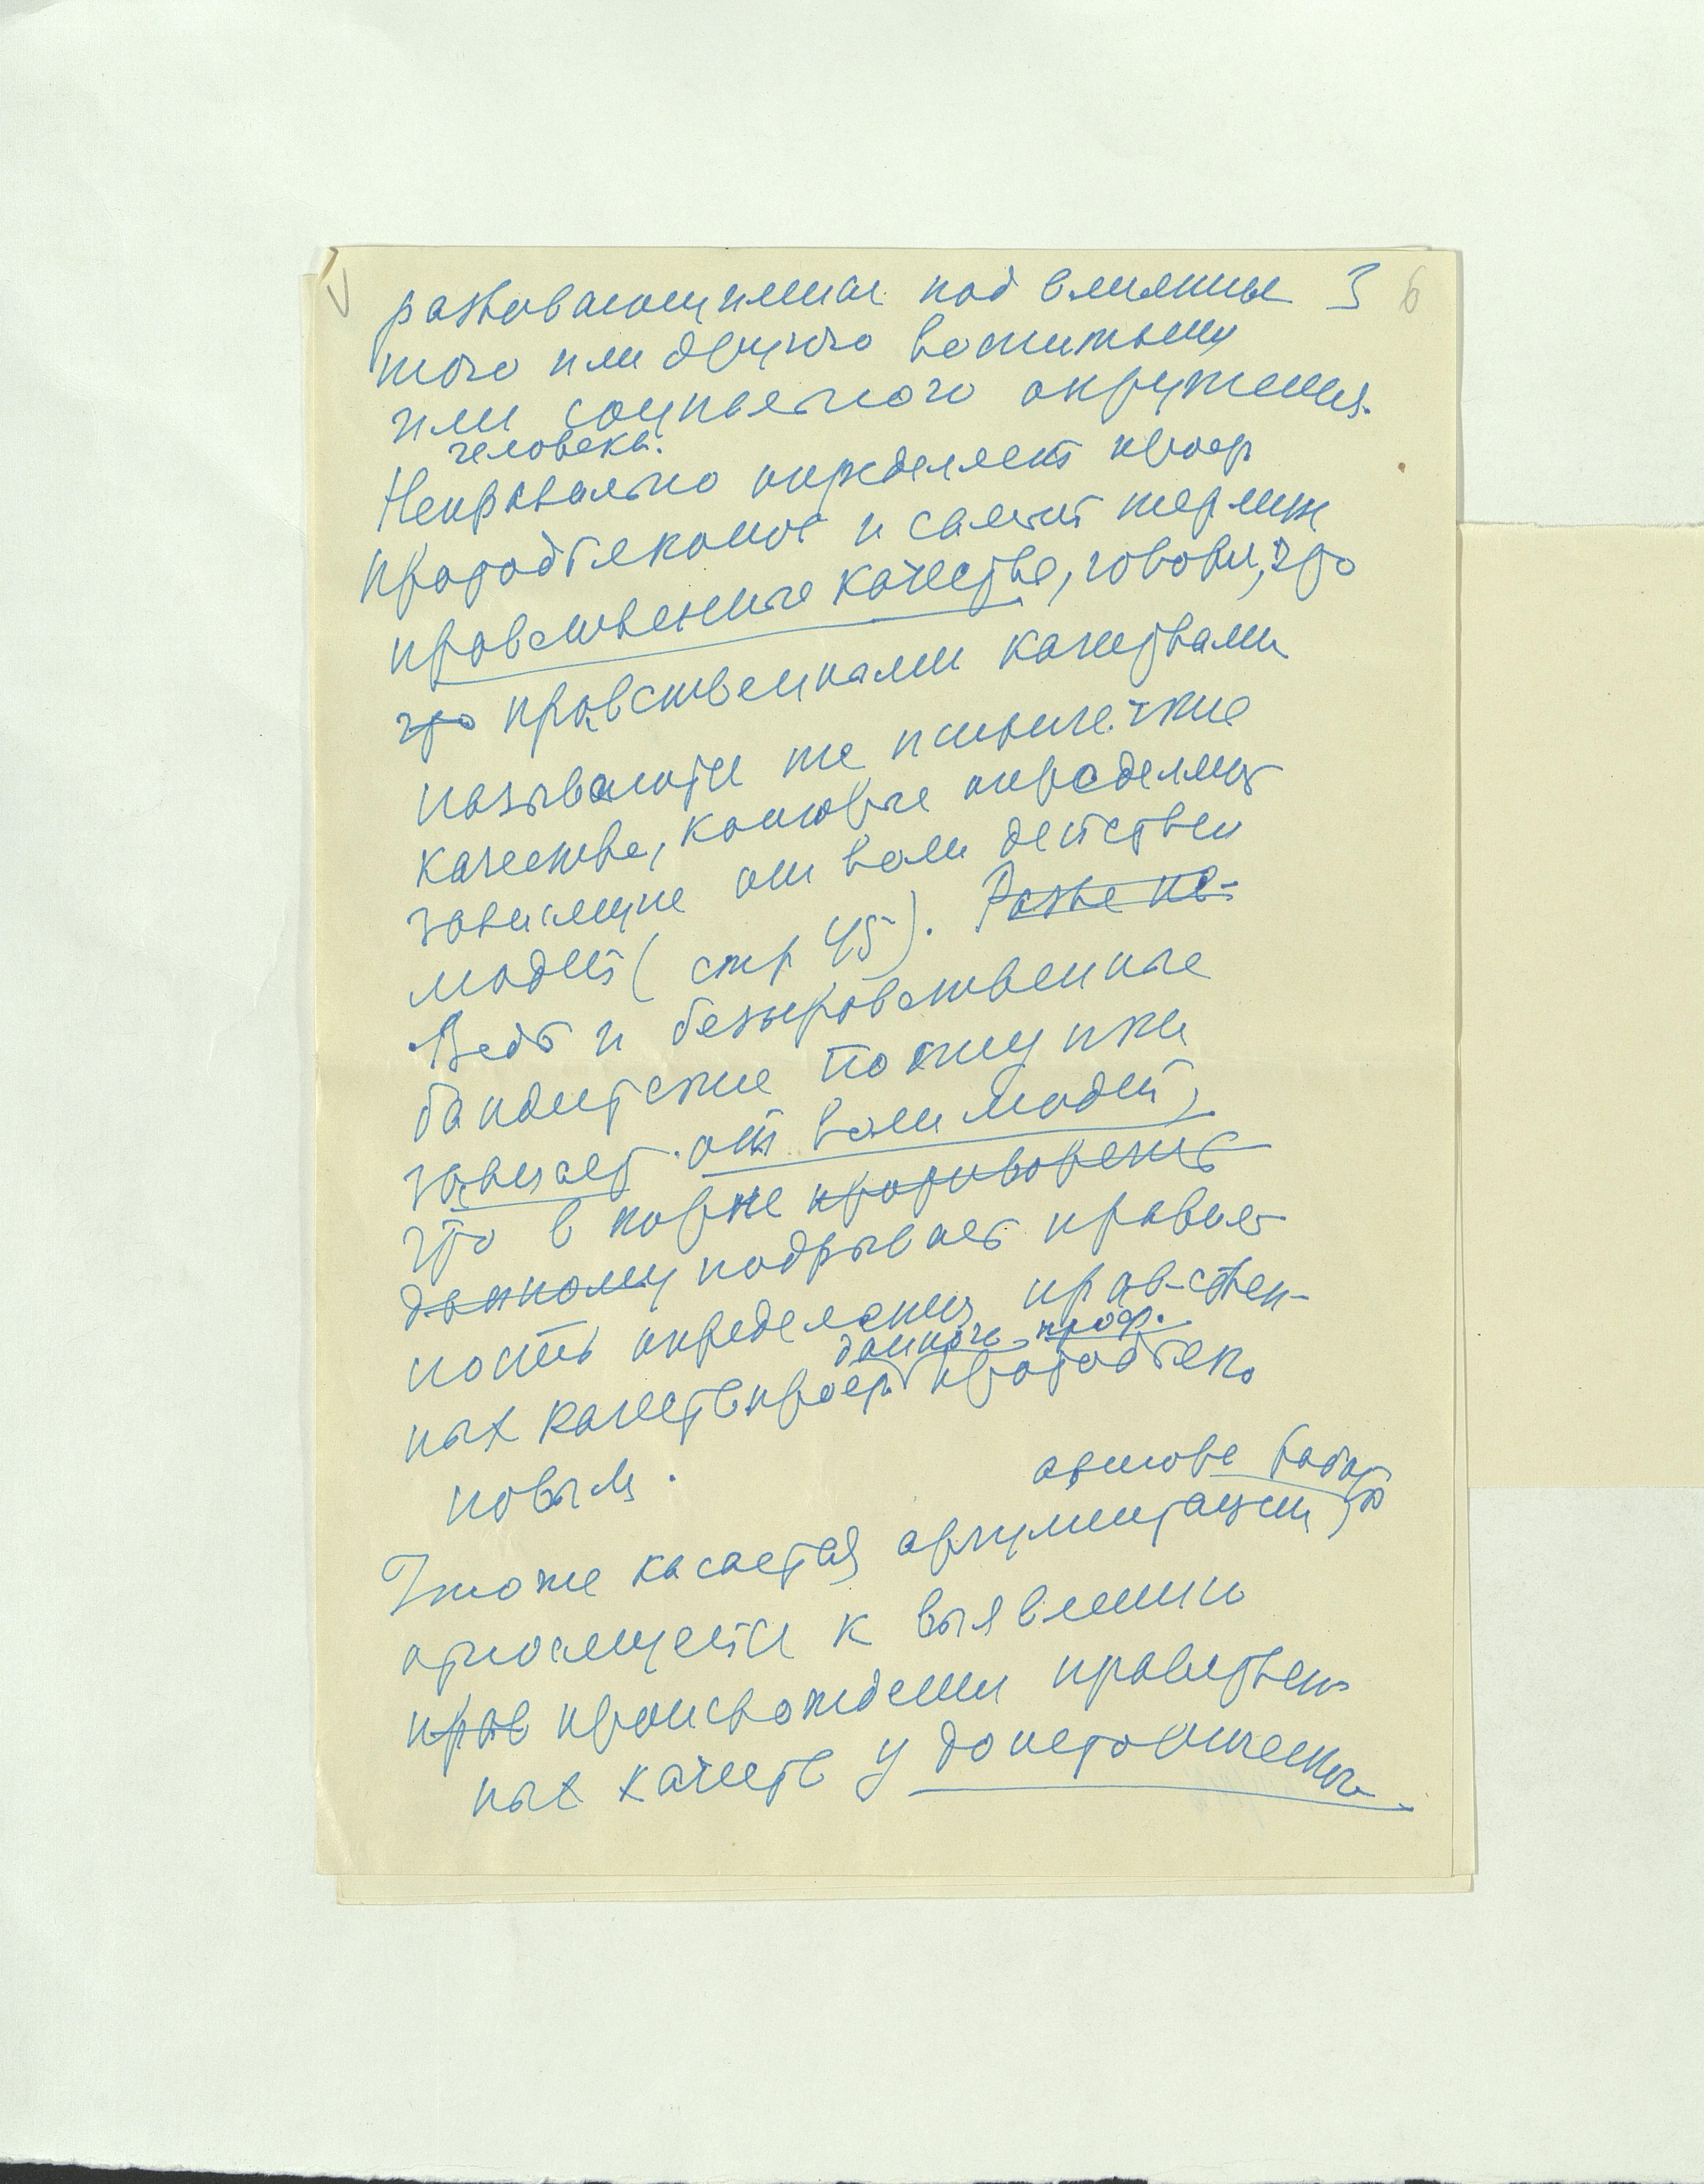 развивающимися под влиянием 3 6
того или другого воспитания
или социального окружения
человека.
Неправильно определяет проф
Протодьяконов и самый термин
нравственные качества, говоря, что
что нравственными качествами
называются те психические
качества, которые определяют
зависящие от воли действия
людей (стр 45). Разве не
Ведь и безнравственные
бандитские поступки
зависят от воли людей,
что в корне противоречит
данному подрывает правиль
ность определения нрав-ствен-
данного проф.
ных качеств проф. Протодьяко
новым.
автора работы
Что же касается аргументации,
относящейся к выявлению
нрав происхождения нравствен
ных качеств у доисторического